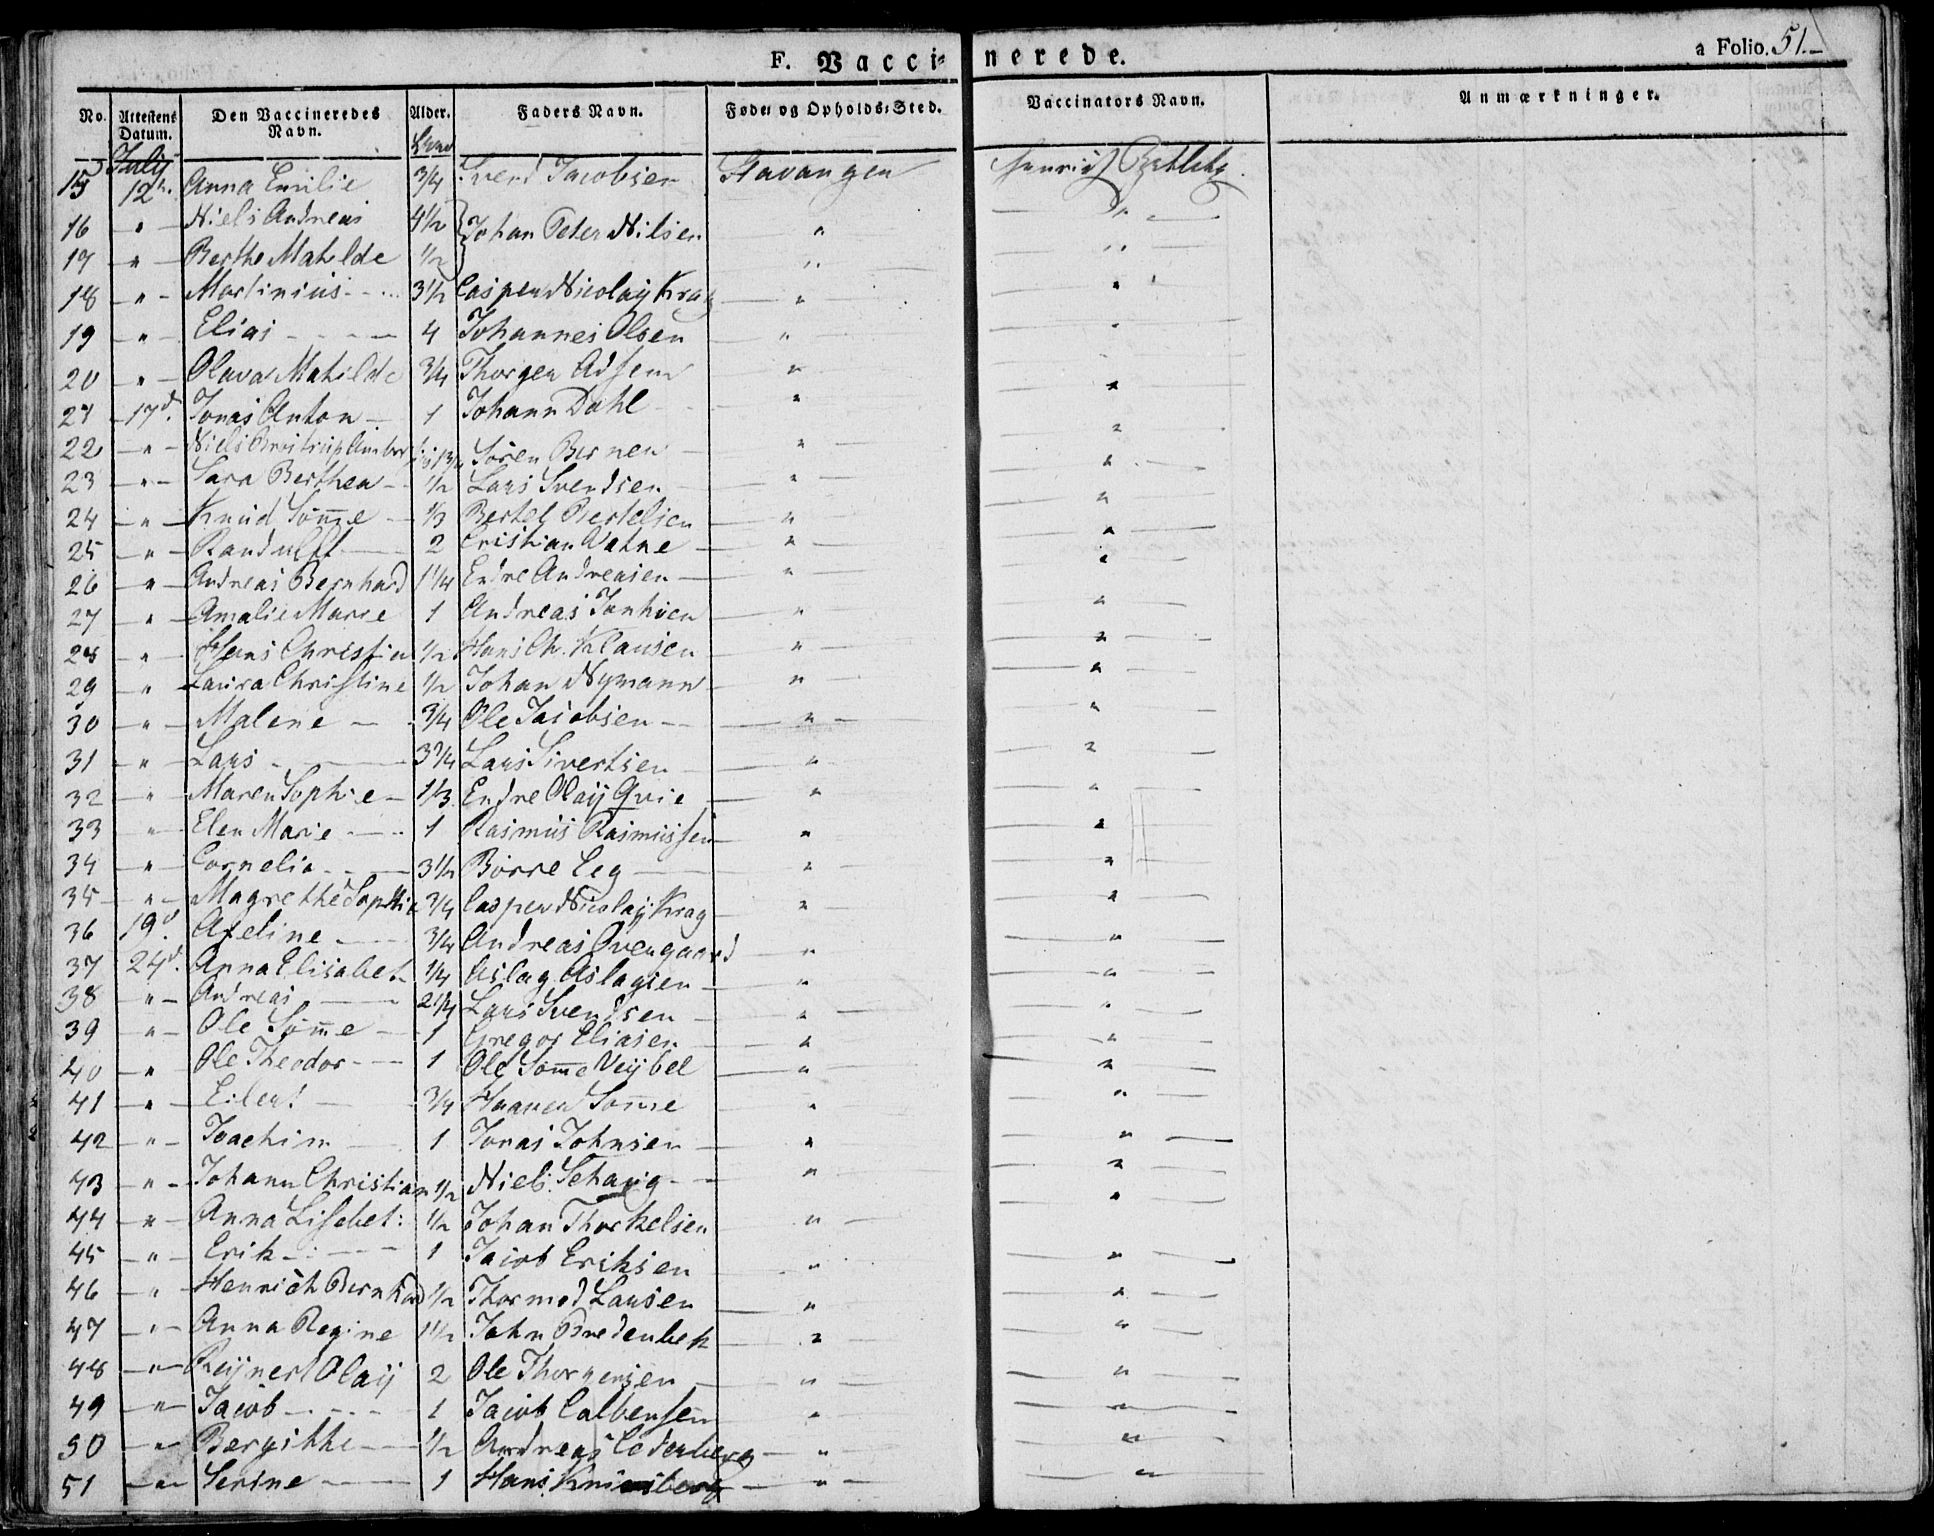 F. Vacci- nerede. a Folio. 51.-
No. Attestens Datum. Den Vaccineredes Navn. Alder. Faders Navn. Føde- og Opholds-Sted. Vaccinators Navn. Anmærkninger.
July
15 12 Anna Emilie 3/4 Svend Jacobsen Stavanger
16 " Niels Andreas 4 1/2 } Johan Peter Nilsen " "
17 " Berthe Mathilde 1/2 " "
18 " Martinius 3 1/2 Casper Nicolaij Krag " "
19 " Elias 4 Johannes Olsen " "
20 " Olava Mathilde 3/4 Thorger " "
21 17d. Jonas Anton 1 Johann Dahl " "
22 " Niels Søren Berner " "
23 " Sara Berthea 1/2 Lars Svendsen " "
24 " Knud Sømme 1/3 Bertel Bertelsen " "
25 " Randulff 2 Cristian Vatne " "
26 " Andreas Bernhard 1 1/4 Endre Andreasen " "
27 " Amalie Marie 1 Andreas " "
28 " Hans Christian 1/2 Hans Ch. Klausen " "
29 " Laura Christine 1/2 Johan Nymann " "
30 " Malene 3/4 Ole Jacobsen " "
31 " Lars 3 3/4 Lars Sivertsen " "
32 " Maren Sophie 1 1/3 Endre Olaij Qvie " "
33 " Elen Marie 1 Rasmus Rasmussen " "
34 " Cornelia 3 1/2 Børre Eeg " "
35 " Magrethe Sophie 3/4 Casper Nicolaij Krag " "
36 19d. Aseline 3/4 Andreas Ovengaard " "
37 24d. Anna Elisabet 1/4 Aslag Aslagsen " "
38 " Andreas 2 1/4 Lars Svendsen " "
39 " Ole Sømme 1 Gregor Eliasen " "
40 " Ole Theodor 1 Ole Sømme Veijbel " "
41 " Eilert 3/4 Haaver Sømme " "
42 " Joachim 1 Jonas Johnsen " "
43 " Johann Christian 1/2 Niels Schaug " "
44 " Anna Lisebet: 1/2 Johan Thorkelsen " "
45 " Erik 1 Jacob Eriksen " "
46 " Henrich Bernhard 1/2 Thormod Larsen " "
47 " Anna Regine 1 1/2 John Bredenbek " "
48 " Reijnert Olaij 2 Ole Thorgersen " "
49 " Jacob 1 Jacob Calbensen " "
50 " Bergithe 1/2 Andreas Cederberg " "
51 " Serine 1 Hans " "